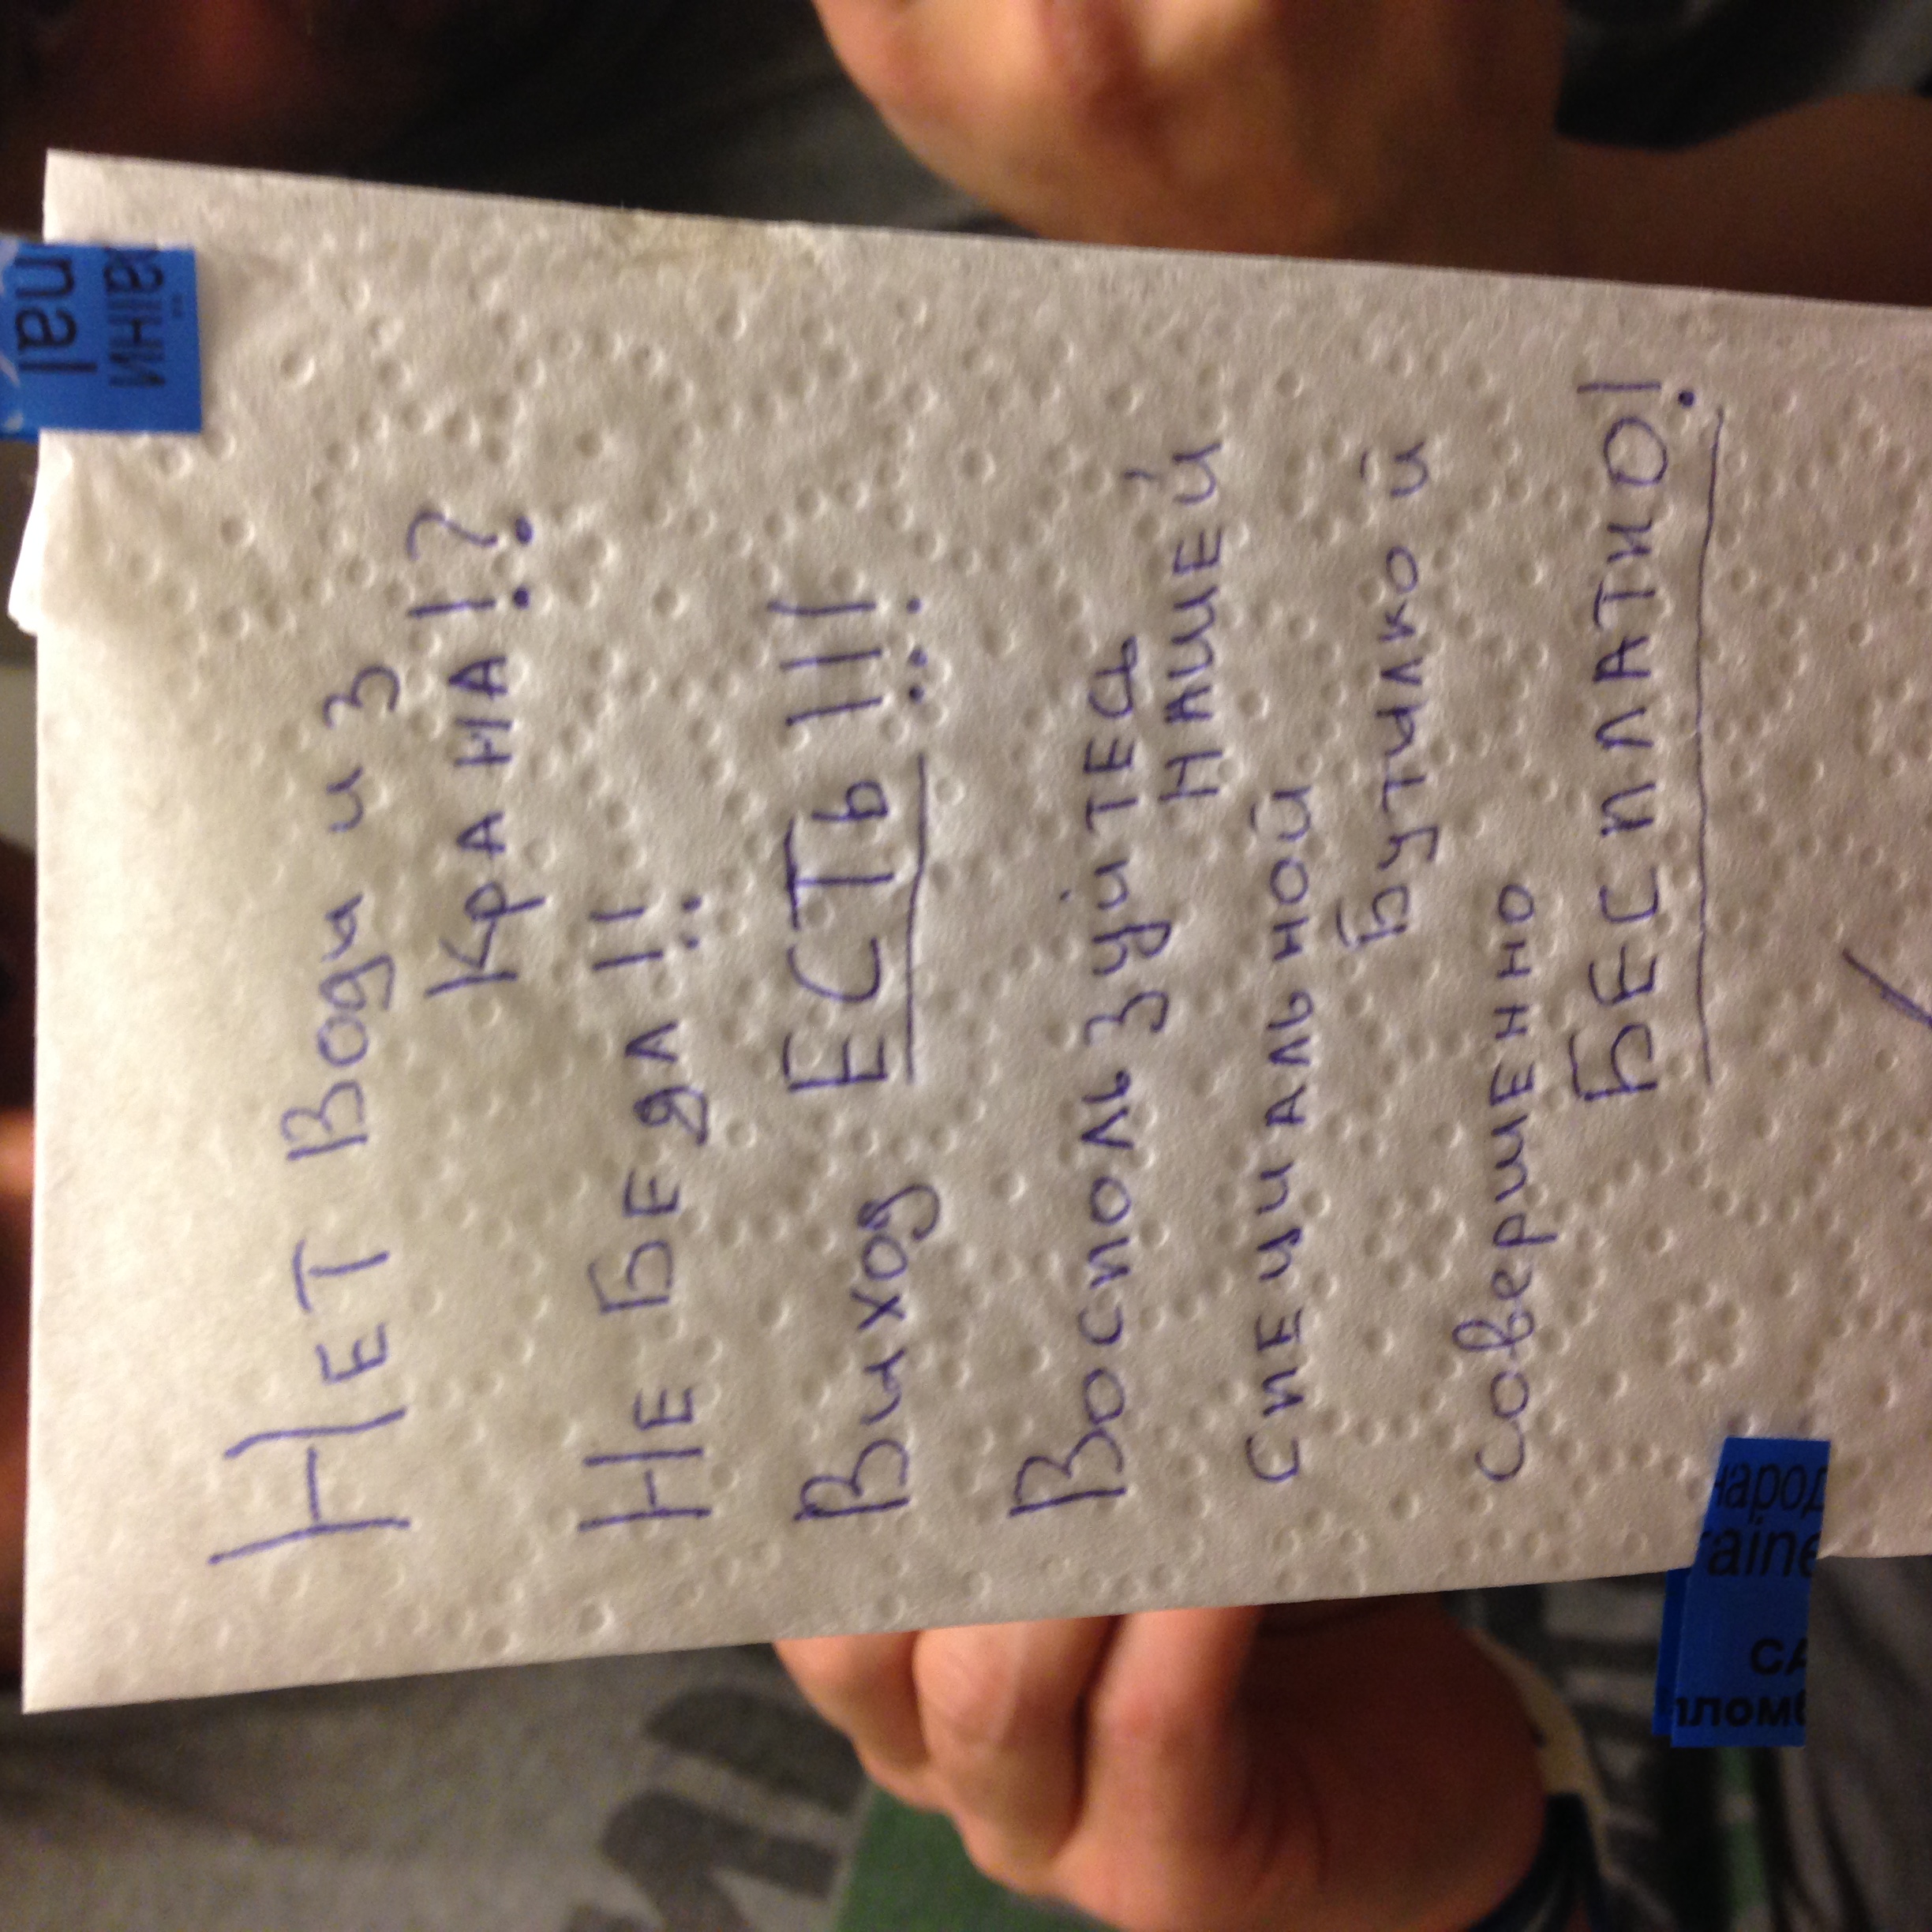 НЕТ Води из
Крана!?
НЕ БЕДА!!
Виход ЕСТЬ!!!
Воспользуйтесь
НАШЕЙ
специальной
Бутилкой
совершенно
БЕСПЛАТНО!
раїни
nal
народ
raine
СА
пломб